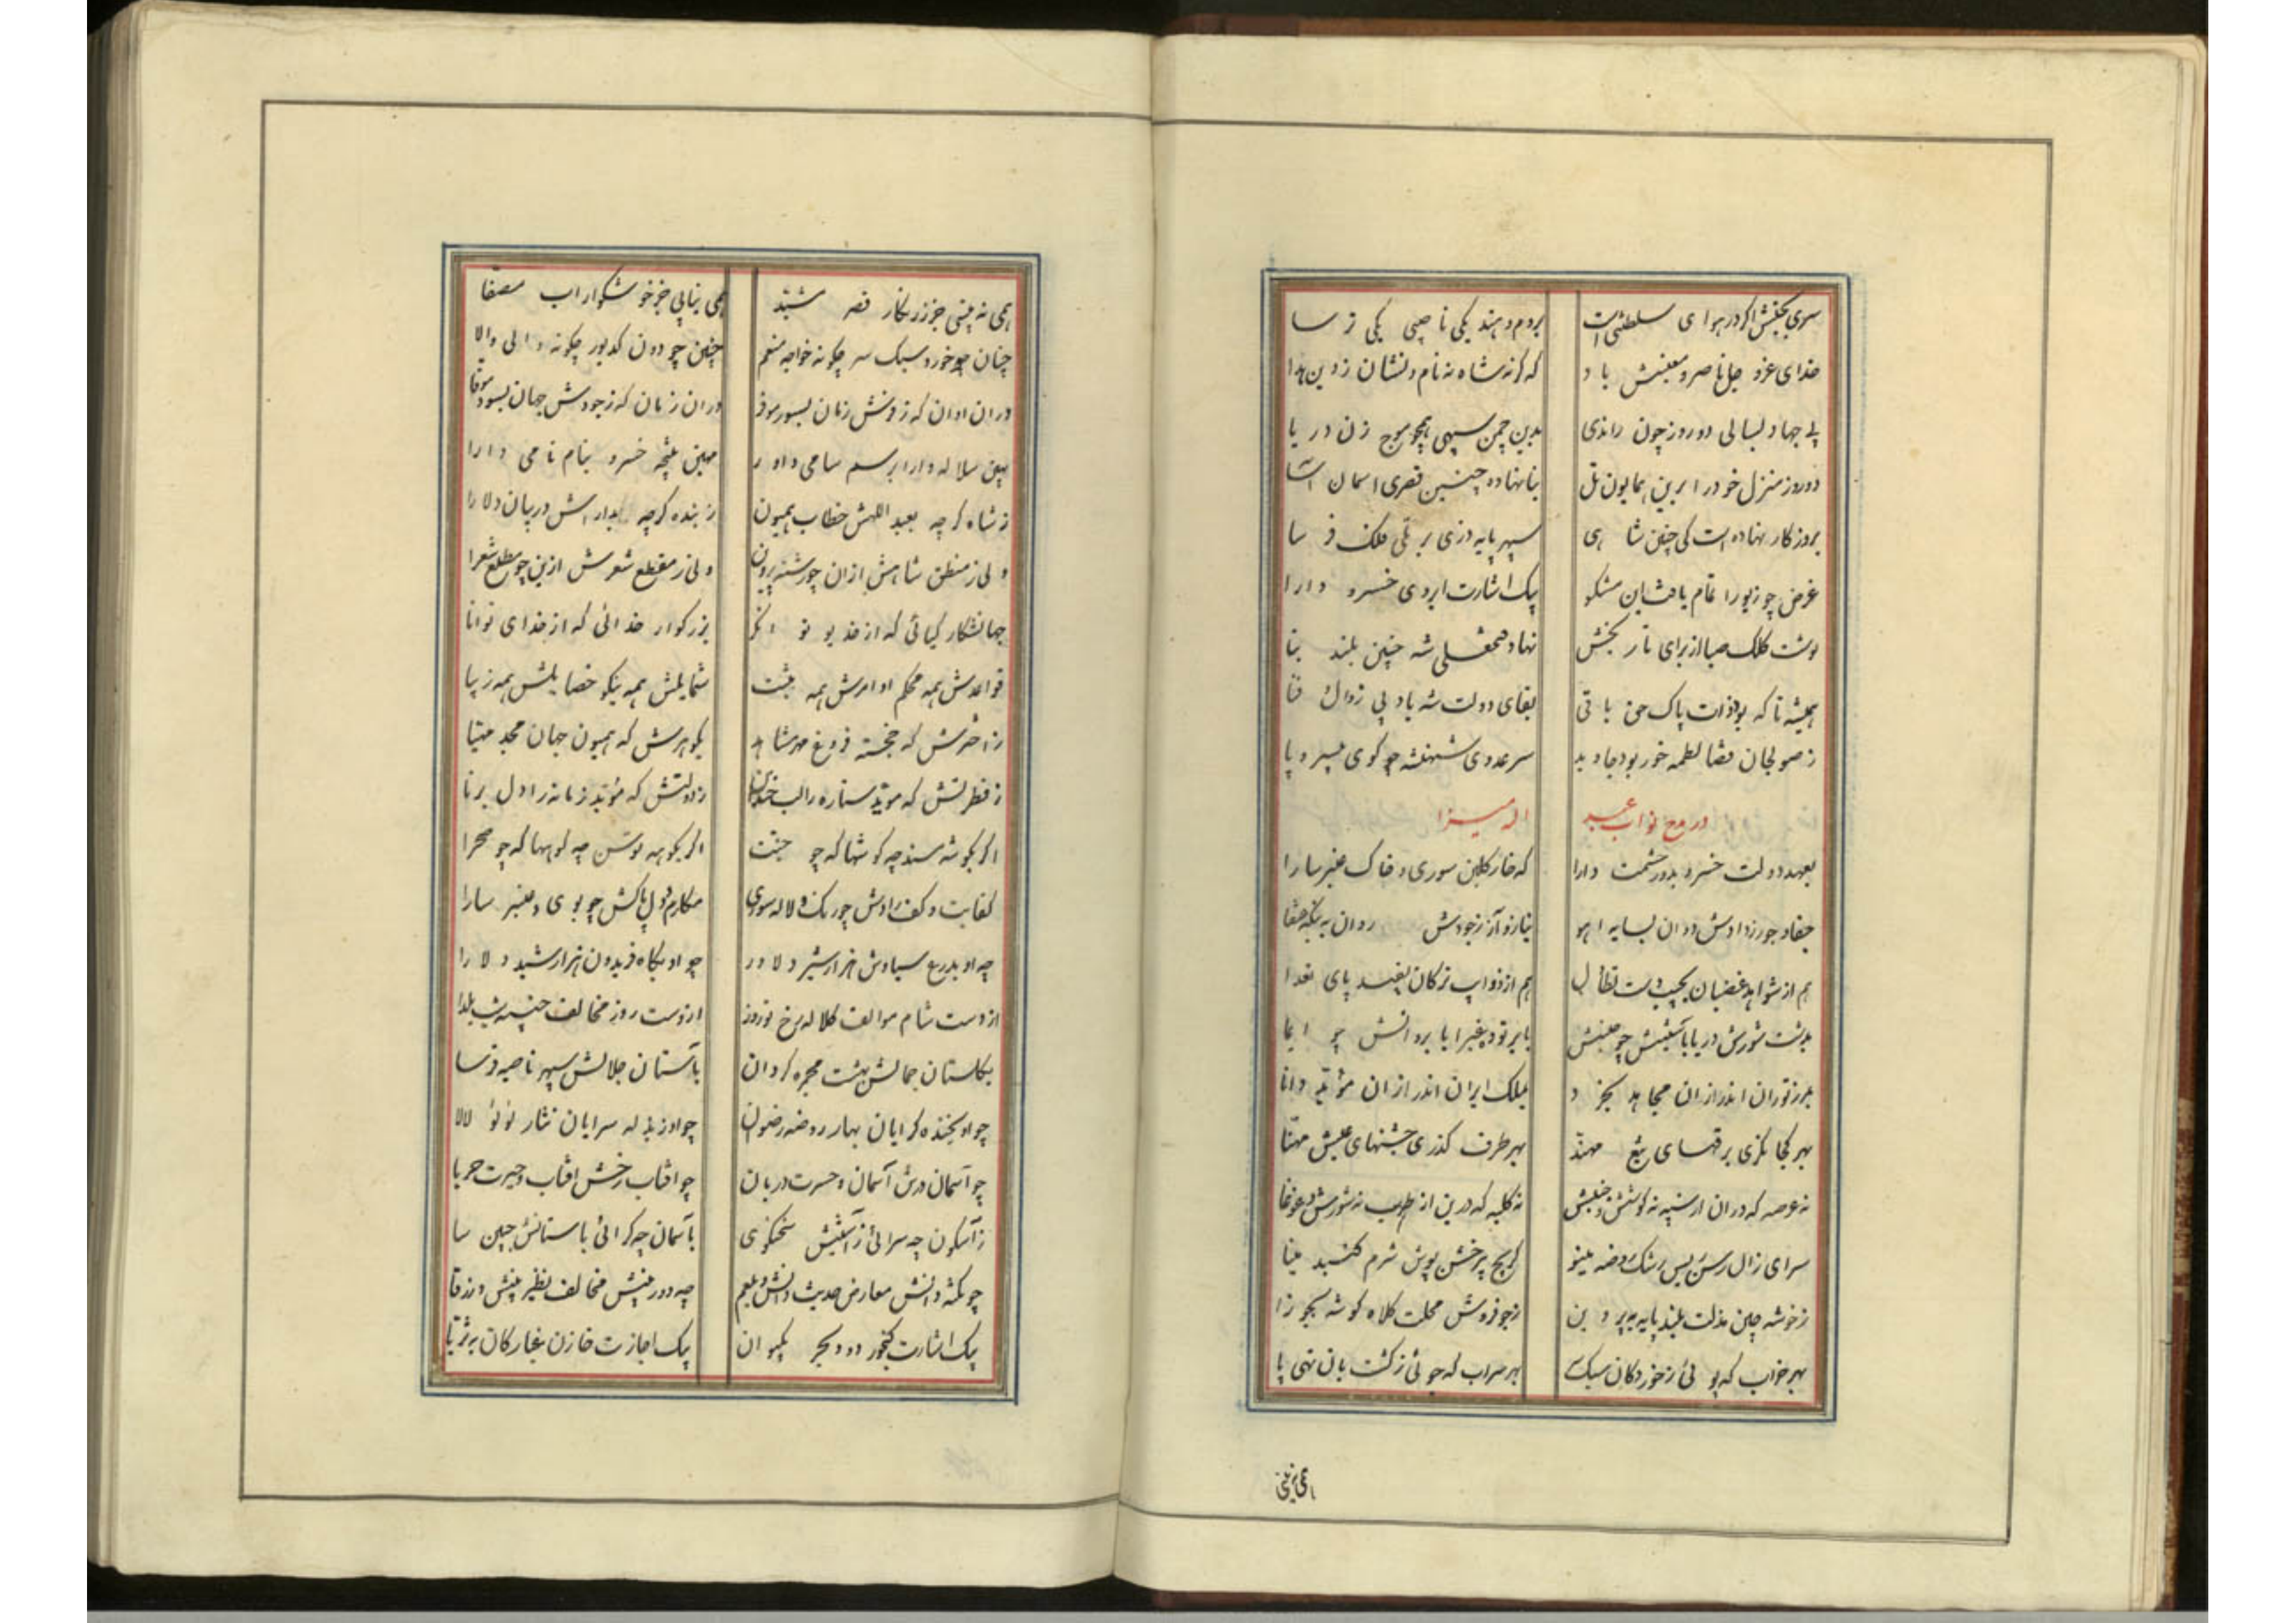 سری بجنبش اگر در هوای سلطنتی است بروم و هند یکی ناصبی یکی ترسا
خدای عزوجل ناصر و معینش باد که گرنه شاه نه نام و نشان ز دین هدا
پی جهاد لیالی دو روز چون راندی بدین چمن سپهی همچو موج زن دریا
دو روز منزل خود را برین همایون تل بنا نهاده چنین قصری اسمان آسا
بروزکار نهاده است کی چنین شاهی سپهر پایه دزی بر تلی فلک فرسا
غرض چو زیور اتمام یافت این مشکو بیک اشارت ابروی خسرو دارا
نوشت کلک صبا از برای تاریخش نهاد فتحعلی شه چنین بلند بنا
همیشه تا که بود ذات پاک حق باقی بقای دولت شه باد بی زوال فنا
ز صولجان قضا لطمه خور بود جاوید سر عدوی شهنشه چو گوی بیسر و پا
در مدح نواب عبد الله میرزا
بعهد دولت خسرو بدور حشمت دارا که خار گلبن سوری و خاک عنبر سارا
جفا و جور ز دادش دوان بسایه اهو نیاز و آز ز جودش روان به بنگه عنقا
هم از شواهد غضبان بجیب دست تطاول هم از ذوایب ترکان بقید پای تعدا
بدشت شورش دریا با ستینش چو جنبش
بمرز توران اندر از ان مجاهد بخرد بملک ایران اندر از ان مؤید دانا
بهر کجا نگری برقهای تیغ مهند بهر طرف گذری جشنهای عیش مهنا
نه عرصه که در ان از سپه نه کوشش و جنبش نه کلبه که درین از طرب نه شورش و غوغا
سرای زال رسن ریس رشک روضه مینو کریج پیر خشن پوش شرم گنبد مینا
ز خوشه چین مذلت بلند پایه به پروین ز جو فروش محلت کلاه گوشه بجوزا
بهر خواب که پوئی ز خورد کان سبک بهر سراب که جوئی ز کشت بان تهی پا
همی نه بینی
همی نه بینی جز زرنگار قصر مشید همی نیابی جز خوشگوار اب مصفا
چنان چو خورد سبک سر چگونه خواجه منعم چنین چو دون کدیور چگونه والی والا
در ان اوان که ز رویش زمان بسور موفر در ان زمان که ز جودش جهان بسود موفا
مهین سلاله دارا برسم سامی داور مهین نتیجه خسرو بنام نامی دارا
ز شاه گرچه بعبد اللهش خطاب همیون ز بنده گرچه بدارایش در بیان دلارا
ولی ز منطق شاهش ازان چو رشته پروین ولی ز مقطع شعرش ازین چو مطلع شعرا
جهانشکار کیائی که از خدیو توانگر بزرکوار خدائی که از خدای توانا
قواعدش همه محکم اوامرش همه مثبت شمایلش همه نیکو خصایلش همه زیبا
ز اخترش که خجسته فروغ مهر مشاهد بگوهرش که همیون جهان مجد مهیا
ز فطرتش که موید ستاره را لب خندان ز دولتش که مؤبد زمانه را دل برنا
کفایت و کف رادش چو رنگ و لاله سوری مکارم و دل پاکش چو بوی و عنبر سارا
چه او بدرع سیاوش هزار شیر دلاور چو او بگاه فریدون هزار شید دلارا
از وست شام موالف کلاله رخ نوروز از وست روز مخالف چنین شب یلدا
بگلستان جمالش بهشت مجمره گردان باستان جلالش سپهر ناصیه فرسا
چو او بخنده گرایان بهار روضه رضوان چو او ز بذله سرایان نثار لؤلؤ لالا
چو آسمان درش آسمان و حسرت دربان چو افتاب رخش افتاب و حیرت حربا
ز آبگون چه سرائی ز آستینش سخنگوی بآسمان چه گرائی باستانش جبین سا
چو نکته دانش معارض حدیث دانش و بلعم چه دوربینش مخالف نظیر بینش و زرقا
بیک اشارت گنجور دو و بحر بکیوان بیک اجازت خازن غبار کان به ثریا